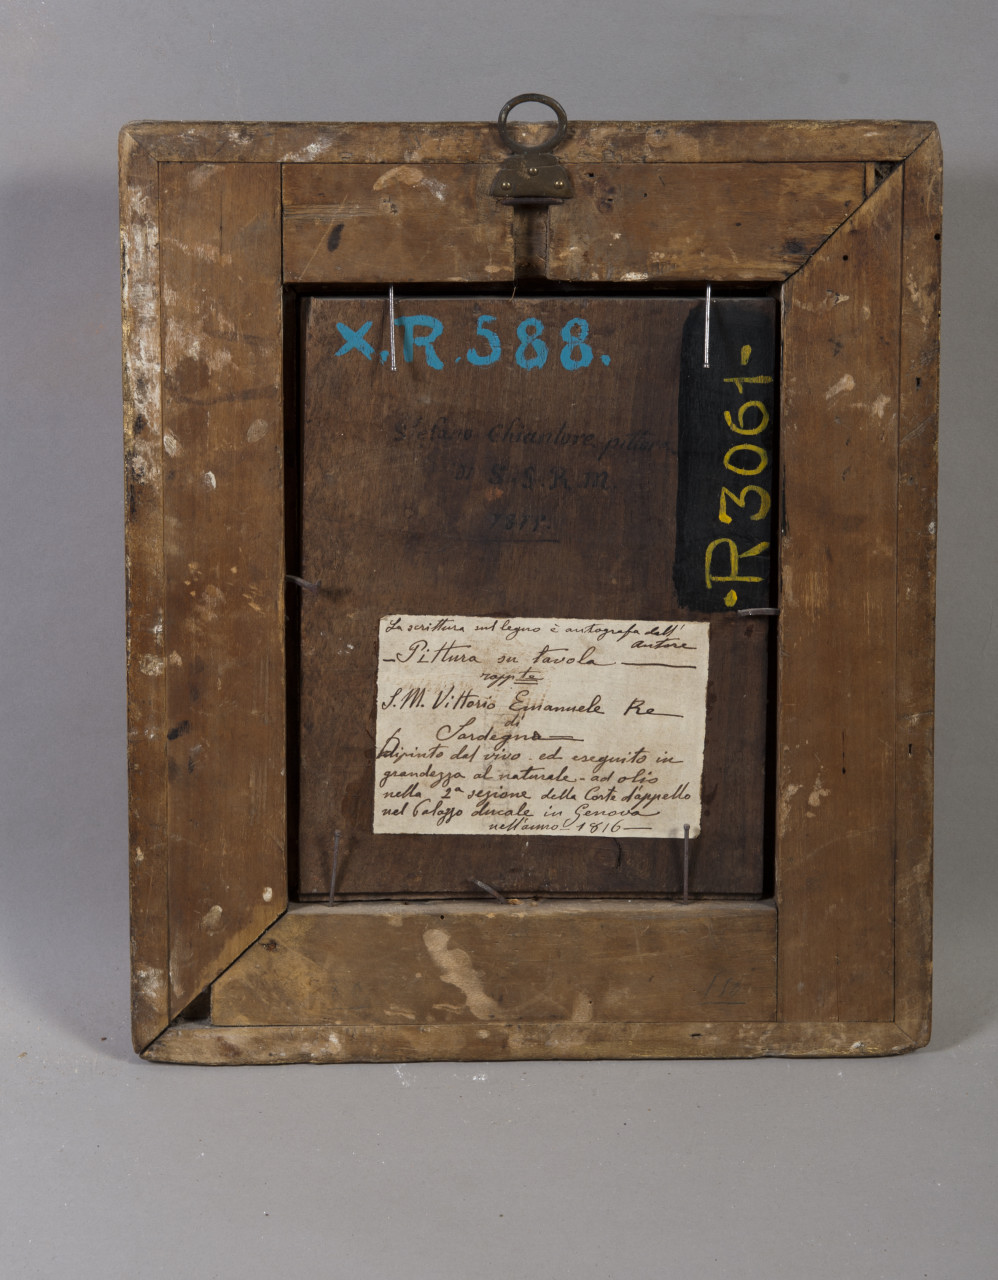 x.R.588.
Stefano Chiantore pittore
di S.S.R.M.
·R3061-
La scrittura sul legno è autografa dell'
autore
- Pittura su tavola
rappte
S.M. Vittorio Emanuele Re
di
Sardegna
dipinto dal vivo ed eseguito in
grandezza al naturale - ad olio
nella 2ª sezione della Corte d'appello
nel Palazzo ducale in Genova
nell'anno - 1816 -